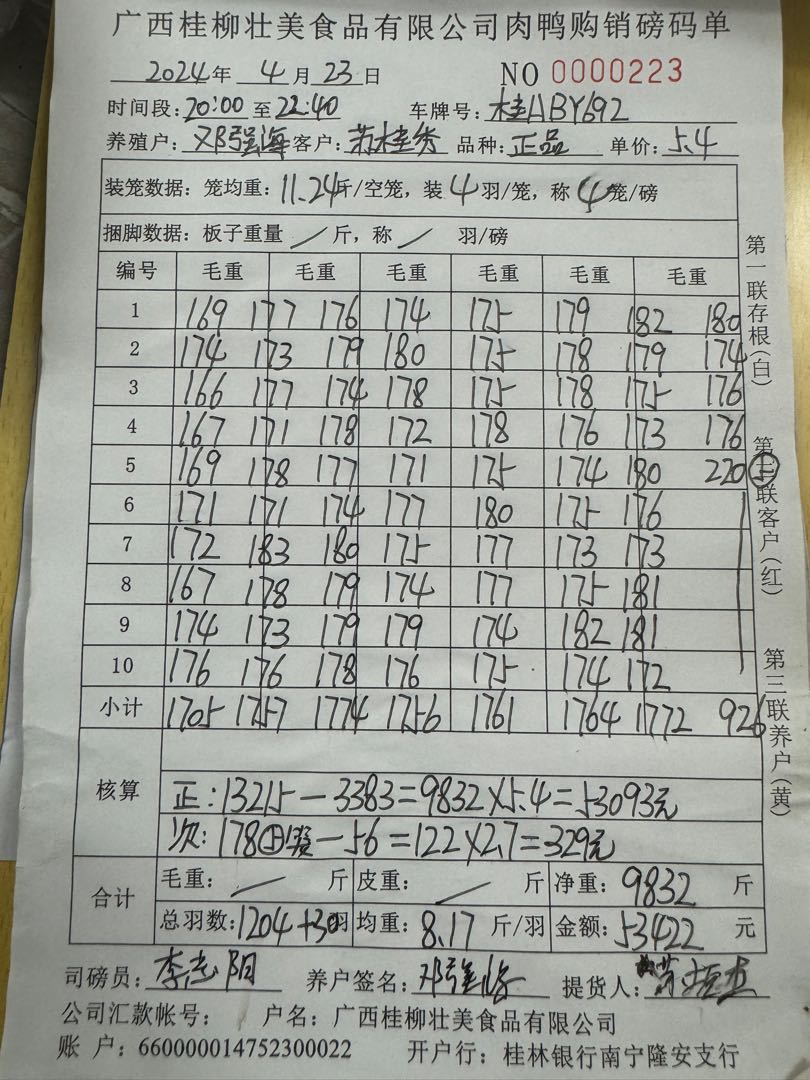 广西桂柳壮美食品有限公司肉鸭购销磅码单
2024年 4月 23日 NO 0000223
时间段: 20:00 至 22:40 车牌号: 桂ABY692
养殖户: 邓强海 客户: 苏桂秀 品种: 正品 单价: 5.4
装笼数据: 笼均重: 11.24斤/空笼, 装 4 羽/笼, 称 4 笼/磅
捆脚数据: 板子重量 / 斤, 称 / 羽/磅
编号 毛重 毛重 毛重 毛重 毛重 毛重
1 169 177 176 174 175 179 182 180
2 174 173 179 180 175 178 179 174
3 166 177 174 178 175 178 175 176
4 167 171 178 172 178 176 173 176
5 169 178 177 171 175 174 180 220⑤
6 171 171 174 177 180 175 176
7 172 183 180 175 177 173 173
8 167 178 179 174 177 175 181
9 174 173 179 179 174 182 181
10 176 176 178 176 175 174 172
小计 1705 1757 1774 1756 1761 1764 1772 926
核算
正: 13215-3383=9832×5.4=53093元
次: 178 -56=122×2.7=329元
合计 毛重: / 斤 皮重: / 斤 净重: 9832 斤
总羽数: 1204+30羽 均重: 8.17 斤/羽 金额: 53422 元
司磅员: 李志阳 养户签名: 邓强海 提货人:
公司汇款帐号: 户名: 广西桂柳壮美食品有限公司
账 户: 660000014752300022 开户行: 桂林银行南宁隆安支行
第一联存根(白)
第二联客户(红)
第三联养户(黄)